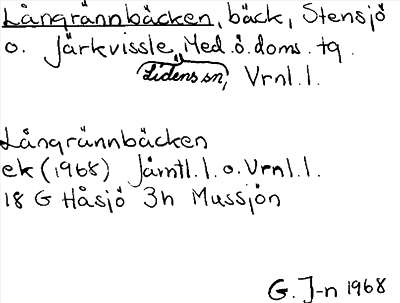 Långrännbäcken, bäck, Stensjö
o. Järkvissle, Med. ö. doms. tg.
Lidens sn, Vrnl. l.
Långrännbäcken
ek (1968) Jämtl. l. o. Vrnl. l.
18 G Håsjö 3h Mussjön
G. J-n 1968